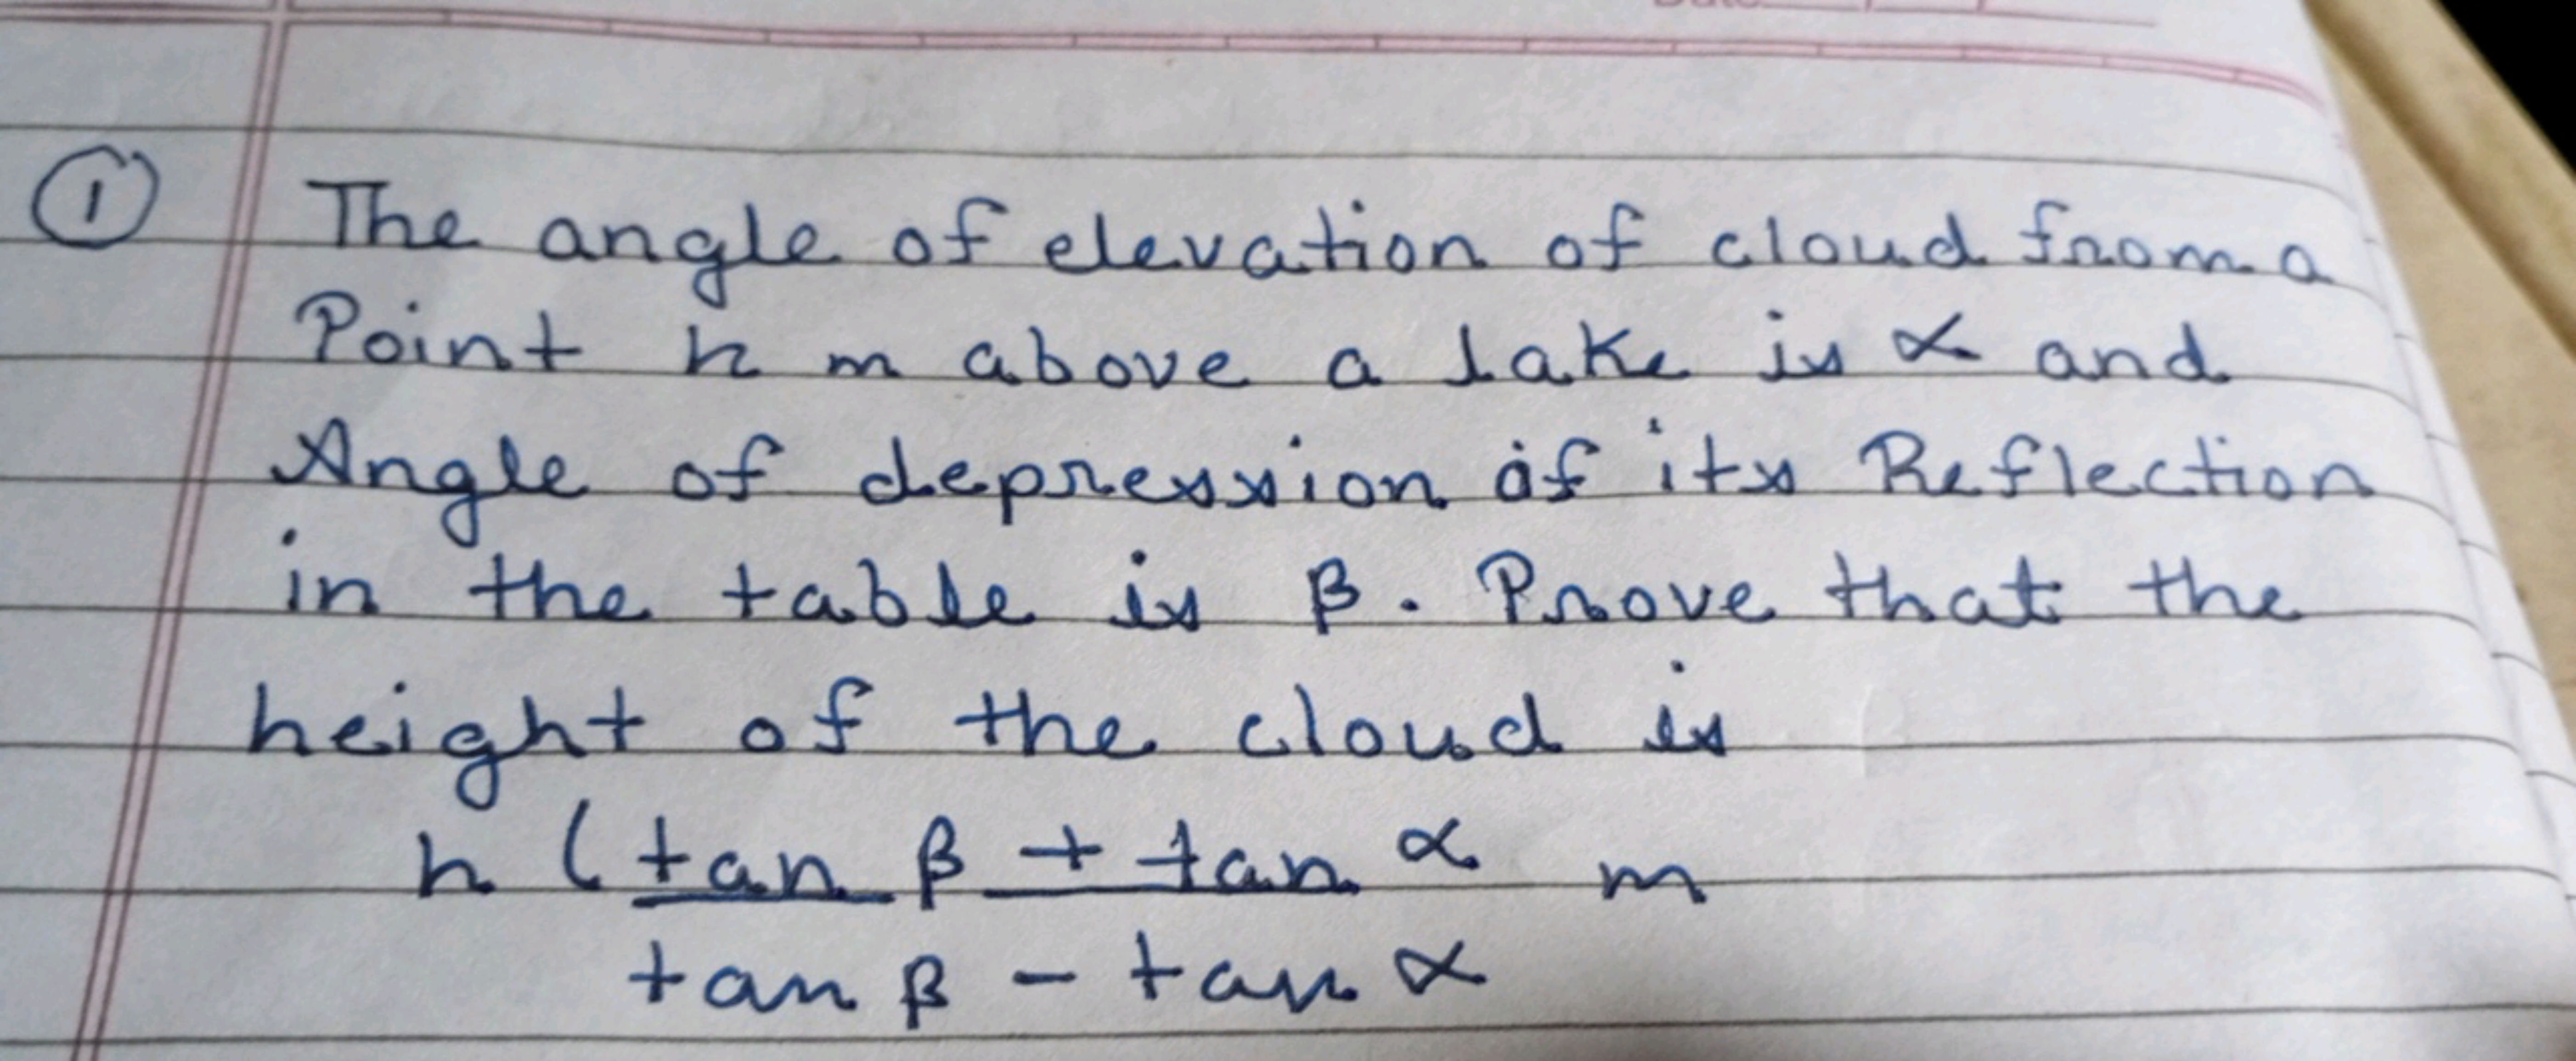 ① The angle of elevation of cloud from a
Point h m above a lake is α and
Angle of depression of its Reflection
in the table is β. Prove that the
height of the cloud is
h ( tan β + tan α m
tan β - tan α